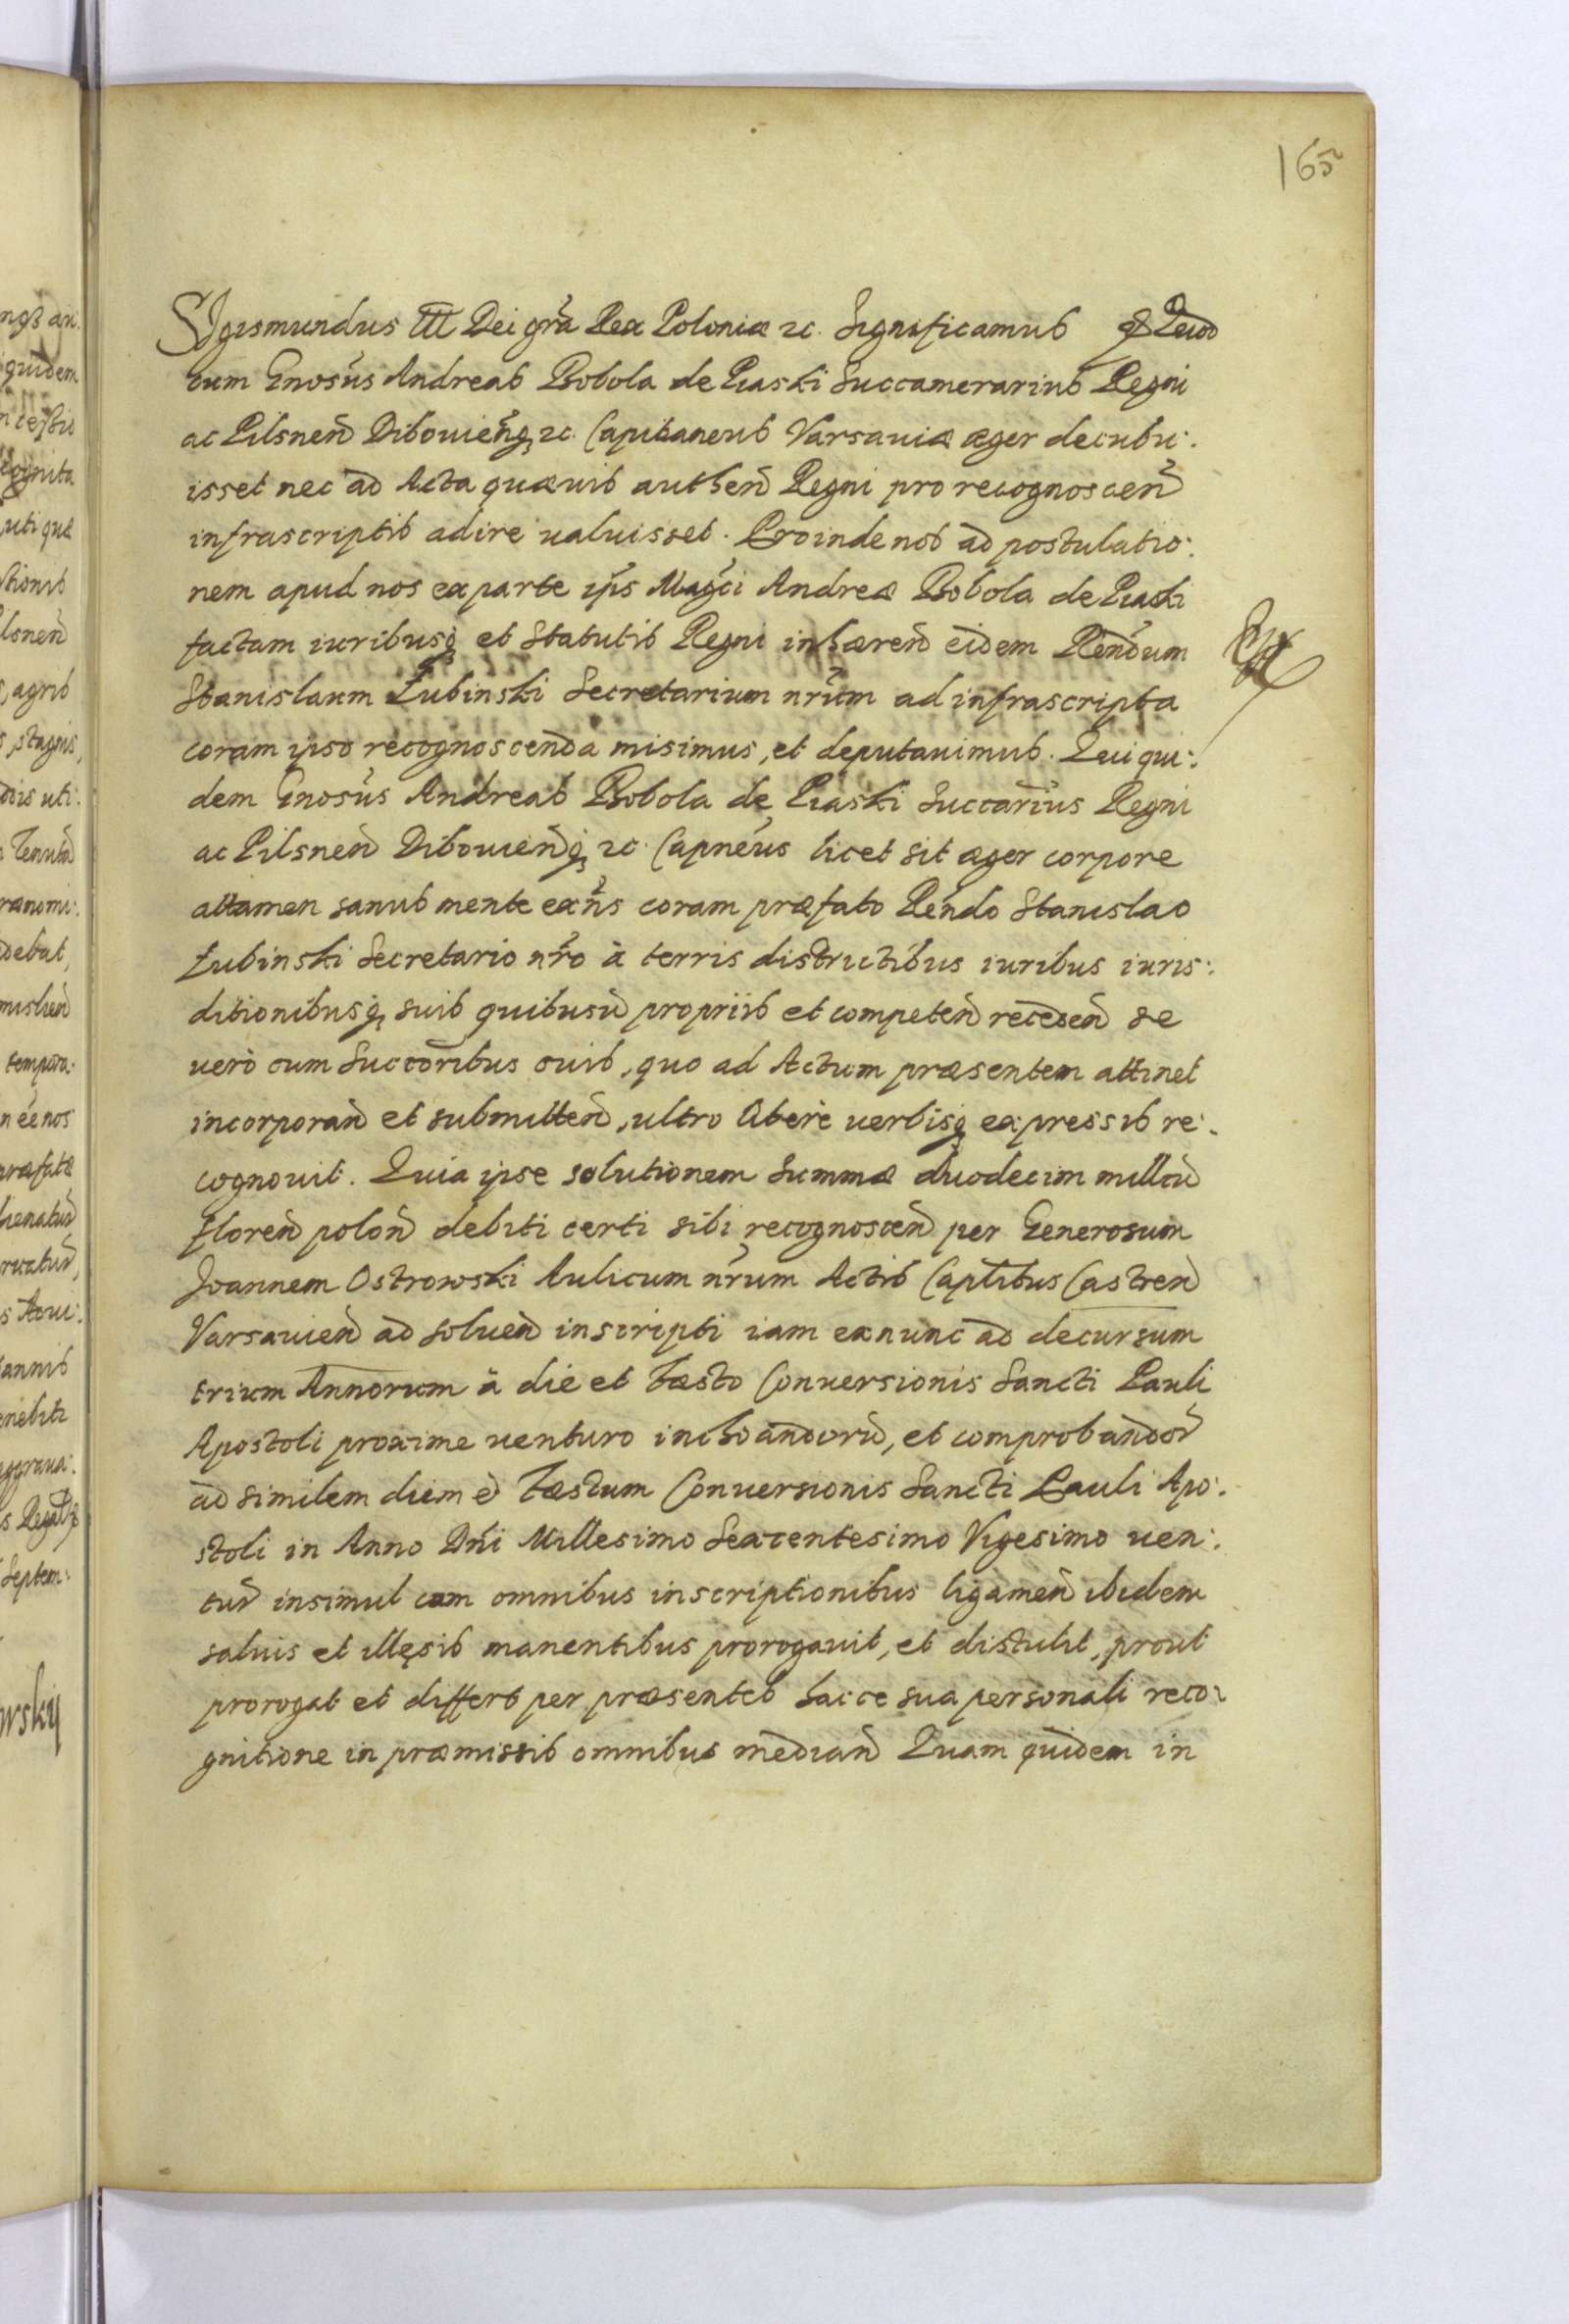 165
Sigismundus III Dei gr̃a Rex Poloniæ ꝛc. Significamus
cum Gnosũs Andreas Bobola de Piaski Succamerarius Regni
ac Pilsneñ Dibouieñq₃ ꝛc. Capitaneus Varsauiæ æger decubu:
isset nec ad Acta quæuis autheñ Regni pro recognosceñ
infrascriptis adire ualuisset. Proinde nos ad postulatio:
nem apud nos ex parte ip̃s Mag̃ci Andreæ Bobola de Piaski
factam iuribusq₃ et Statutis Regni inhæreñ eidem Reñdum
Stanislaum Łubinski Secretarium nr̃um ad infrascripta
coram ipso recognoscenda misimus, et deputauimus. Qui qui:
dem Gnosũs Andreas Bobola de Piaski Succar̃ius Regni
ac Pilsneñ Dibouieñq₃ ꝛc. Capneũs licet sit æger corpore
attamen sanus mente exñs coram præfato Reñdo Stanislao
Łubinski Secretario nr̃o à terris districtibus iuribus iuris:
ditionibusq₃ suis quibusũ propriis et competeñ recedeñ se
uerò cum Succõribus suis, quo ad Actum præsentem attinet
incorporañ et submitteñ, ultro liberè uerbisq₃ expressis re:
cognouit. Quia ipse solutionem Summæ duodecim milliũ
floreñ poloñ debiti certi sibi recognosceñ per Generosum
Joannem Ostrowski Aulicum nr̃um Actis Cap̃libus Castreñ
Varsauieñ ad solueñ inscripti iam exnunc ad decursum
trium Annorum à die et Fæsto Conuersionis Sancti Pauli
Apostoli proxime uenturo inchoandorũ, et comprobandor̃
ad similem diem è Fæstum Conuersionis Sancti Pauli Apo:
stoli in Anno Dñi Millesimo Sexcentesimo Vigesimo uen:
tur̃ insimul cum omnibus inscriptionibus ligameñ ibidem
saluis et illęsis manentibus prorogauit, et distulit, prout
prorogat et differt per præsentes hacce sua personali reco:
gnitione in præmissis omnibus mediañ Quam quidem in